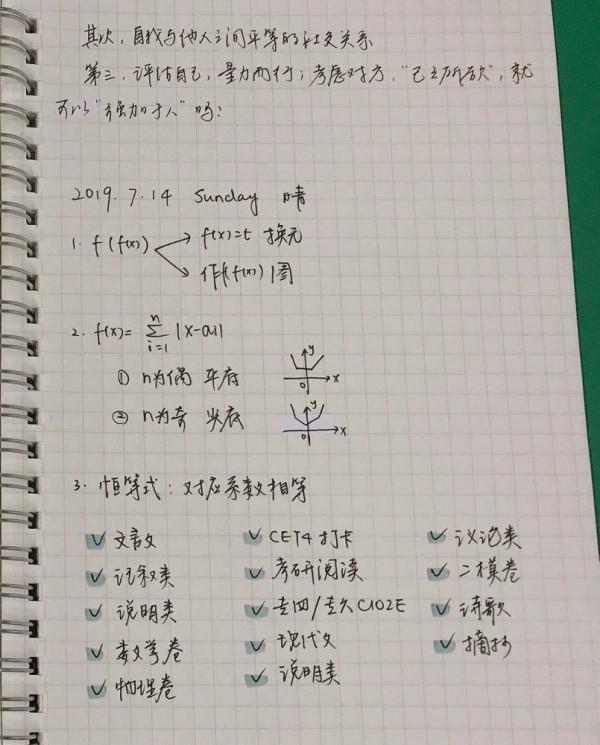 其次，自我与他人之间平等的社交关系
第三，评估自己，量力而行；考虑对方，“己之所欲”，就
可以“强加于人”吗？
2019.7.14 Sunday 晴
1. f(f(x))
f(x)=t 换元
作f(f(x))图
2. f(x)= n∑i=1 |x-ai|
① n为偶 平底
y
o x
② n为奇 尖底
y
o x
3. 恒等式：对应系数相等
文言文 CET4打卡 议论类
记叙类 考研阅读 二模卷
说明类 专四/专八CLOZE 诗歌
数学卷 现代文 摘抄
物理卷 说明类